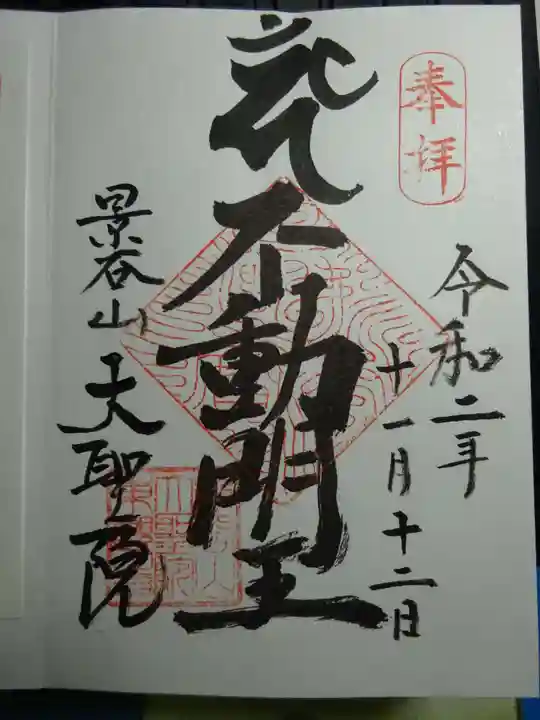 奉拝
令和二年
十一月十二日
不動明王
景谷山
大聖院